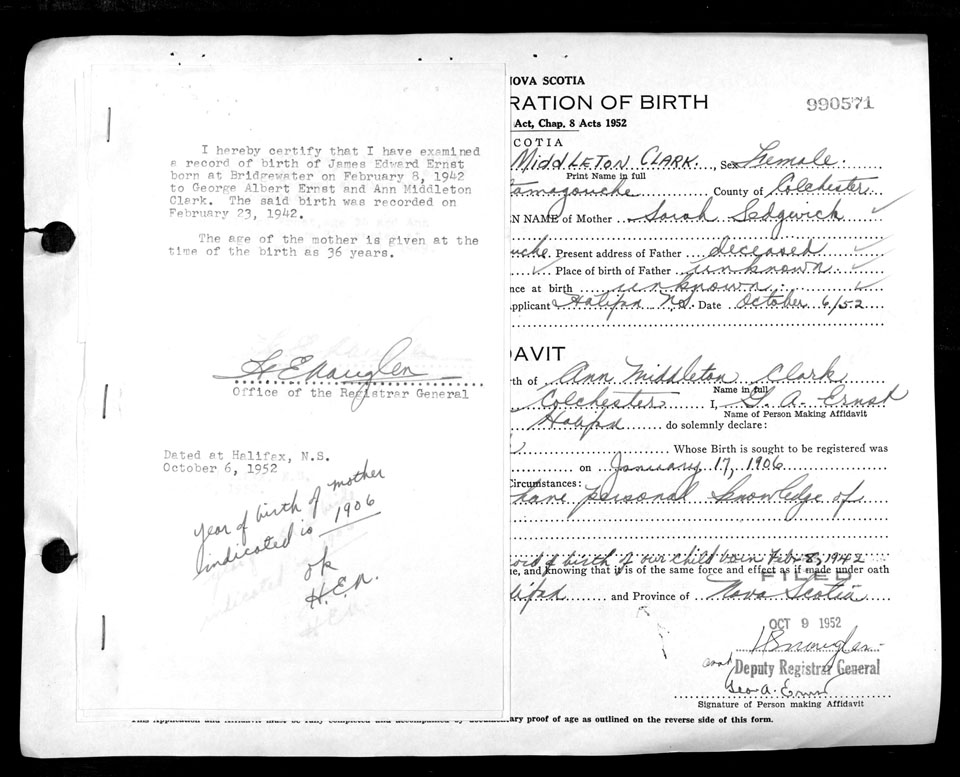 I hereby certify that I have examined
a record of birth of James Edward Ernst
born at Bridgewater on February 8, 1942
to George Albert Ernst and Ann Middleton
Clark. The said birth was recorded on
February 23, 1942.
The age of the mother is given at the
time of the birth as 36 years.
Office of the Registrar General
Dated at Halifax, N.S.
October 6, 1952
year of birth of mother
indicated is 1906
ok
H.E.N.
NOVA SCOTIA
RATION OF BIRTH
990571
Act, Chap. 8 Acts 1952
COTIA
MIDDLETON CLARK. , Sex Female.
Print Name in full
tamagouche County of Colchester
N NAME of Mother Sarah Sedgwick
uche. Present address of Father deceased
Place of birth of Father unknown
nce at birth unknown
pplicant Halifax N.S. Date October 6/52
DAVIT
rth of Ann Middleton Clark
Name in full
Colchester I, G. A. Ernst
Name of Person Making Affidavit
Halifax do solemnly declare:
Whose Birth is sought to be registered was
on January 17, 1906
Circumstances:
have personal knowledge of
ord of birth of our child born Feb. 8, 1942
ue, and knowing that it is of the same force and effect as if made under oath
FILED
lifax and Province of Nova Scotia
OCT 9 1952
Deputy Registrar General
Geo A. Ernst
Signature of Person making Affidavit
This Application and Affidavit must be fully completed and accompanied by documentary proof of age as outlined on the reverse side of this form.